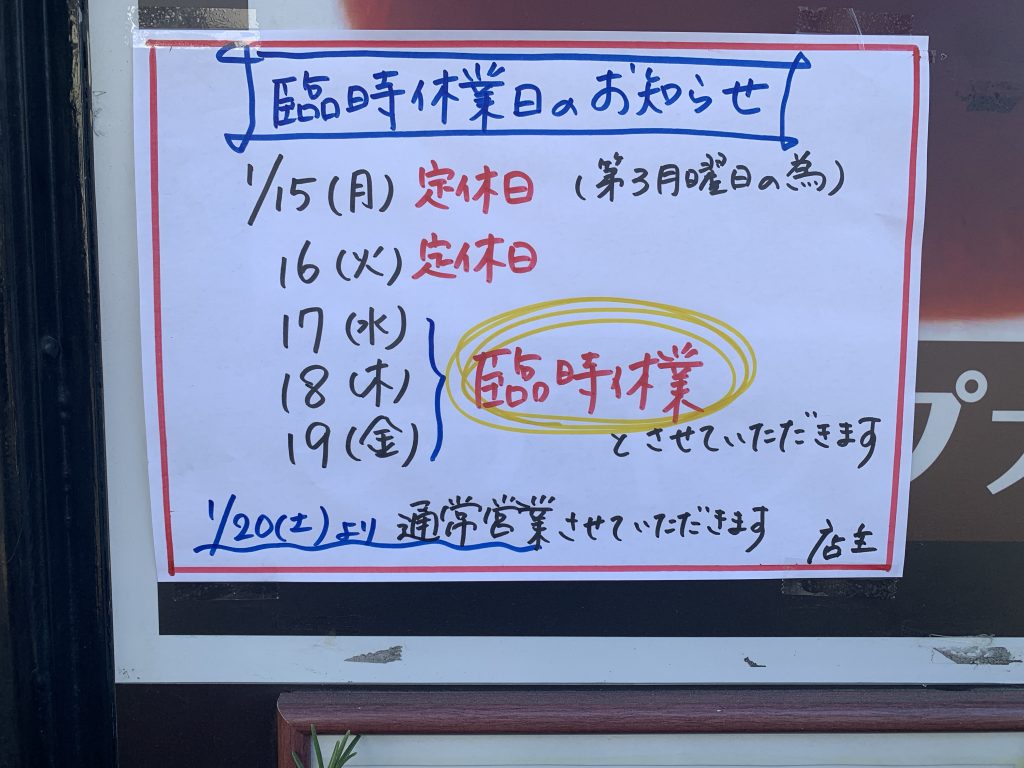 臨時休業日のお知らせ
1/15(月) 定休日 (第3月曜日の為)
16(火) 定休日
17(水)
18(木)
19(金)
臨時休業
とさせていただきます
1/20(土)より 通常営業させていただきます
店主
プナ